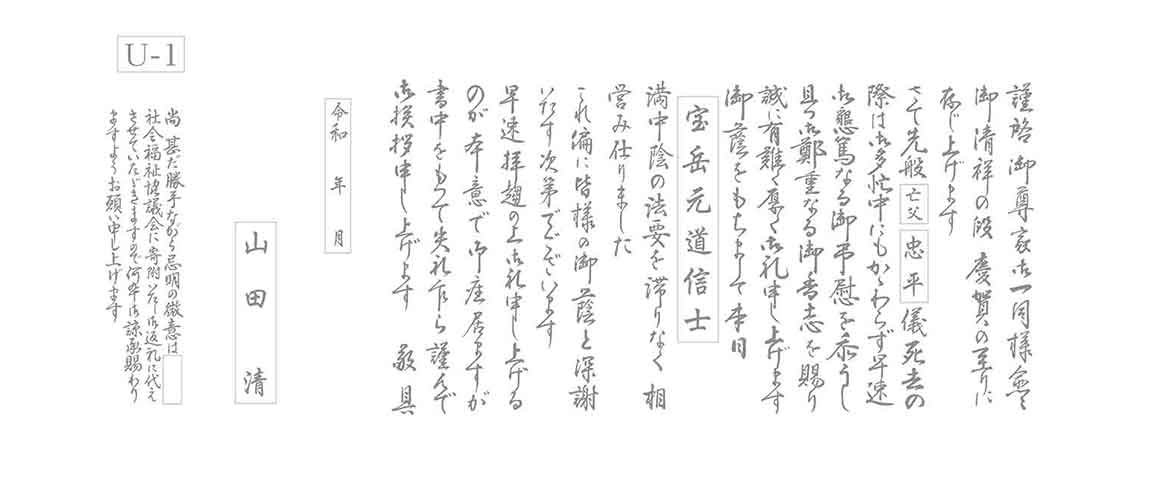 謹啓 御尊家御一同様愈々
御清祥の段 慶賀の至りに
存じ上げます
さて先般 亡父 忠平 儀死去の
際は御多忙中にもかゝわらず早速
御懇篤なる御弔慰を忝うし
且つ御鄭重なる御香志を賜り
誠に有難く厚く御礼申し上げます
御蔭をもちまして本日
宝岳元道信士
満中陰の法要を滞りなく相
営み仕りました
これ偏に皆様の御蔭と深謝
いたす次第でございます
早速拝趨の上御礼申し上げる
のが本意で御座居ますが
書中をもって失礼乍ら謹んで
御挨拶申し上げます 敬具
令和 年 月
山田 清
尚 甚だ勝手ながら忌明の微意は
社会福祉協議会に寄附いたし御返礼に代え
させていたゞきますので何卒御諒承賜わり
ますようお願い申し上げます
U-1